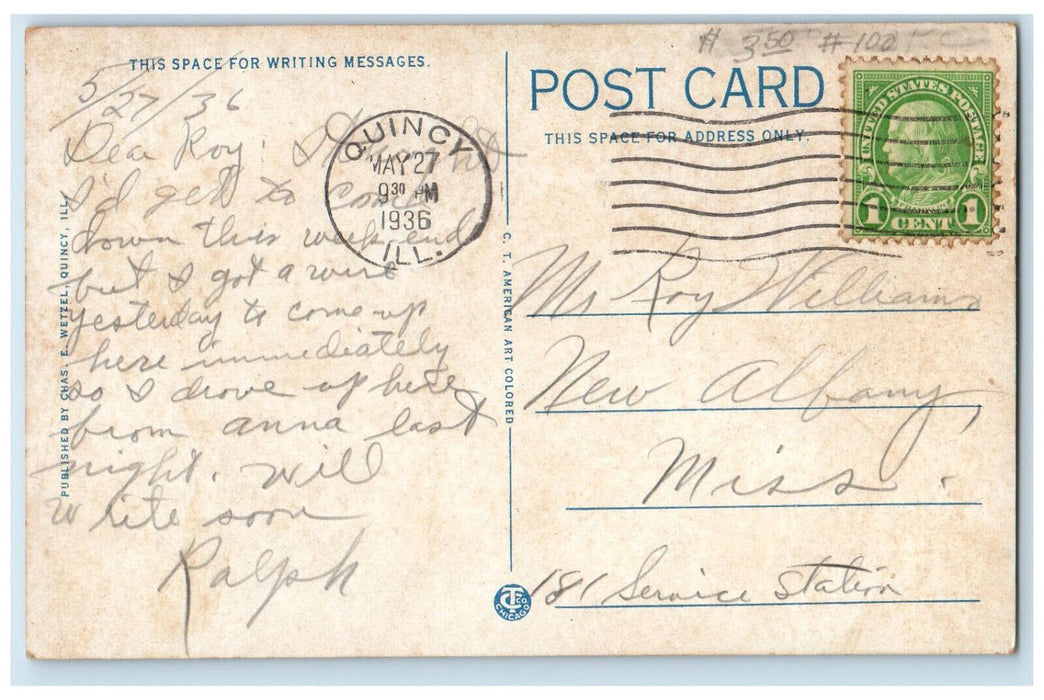 # 3 50 # 100
THIS SPACE FOR WRITING MESSAGES.
5/27/36
Dear Roy: I thought
I'd get to come
down this week end
but I got a wire
yesterday to come up
here immediately
so I drove up here
from anna last
night. Will
write soon
Ralph
PUBLISHED BY CHAS. E. WETZEL, QUINCY, ILL.
QUINCY
MAY 27
9 30 PM
1936
ILL.
C. T. AMERICAN ART COLORED
CT CO. CHICAGO
POST CARD
THIS SPACE FOR ADDRESS ONLY.
UNITED STATES POSTAGE
1 CENT 1
Mr Roy Williams
New Albany,
Miss.
181 Service Station